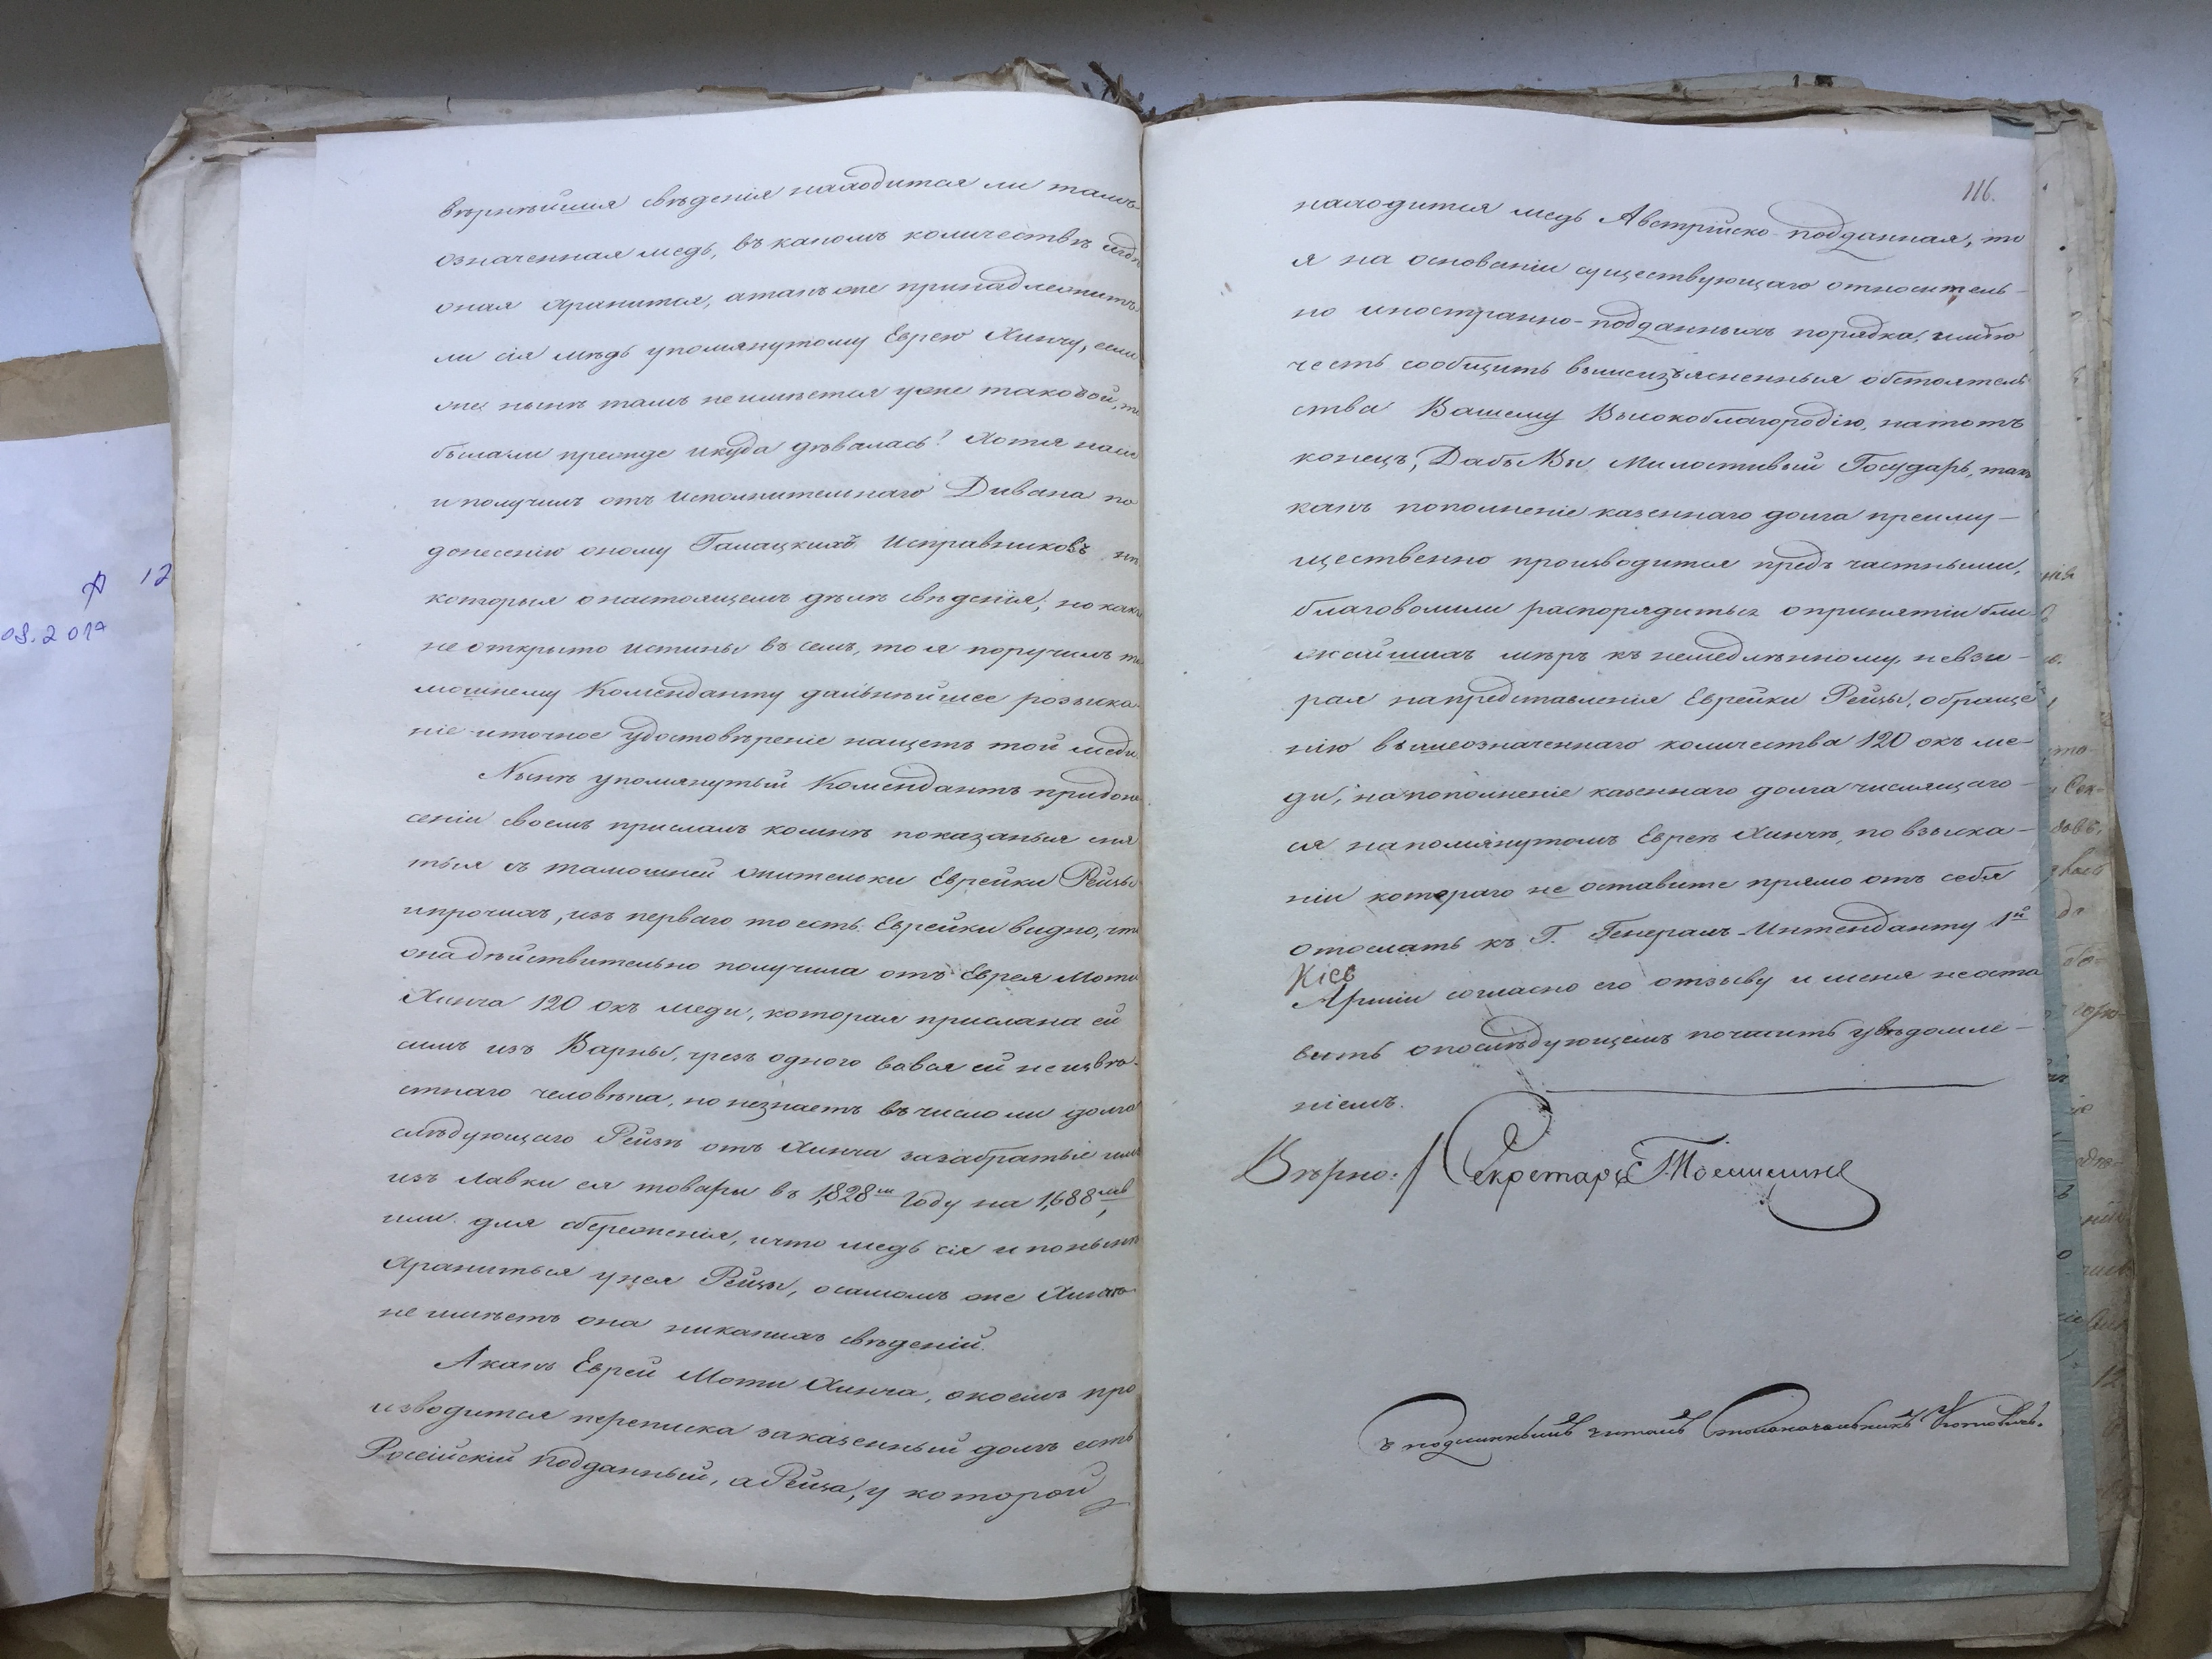 вѣрнѣйшія свѣденія находится ли тамъ
означенная медь, въ какомъ количествѣ
оная хранится, атакъ же принадлежитъ
ли сія мѣдь упомянутому Еврею Хинчу, если
же нынѣ тамъ неимѣется уже таковой, то
былали прежде икуда дѣвалась? Хотя
и получилъ отъ Исполнительнаго Дивана по
донесенію оному Галацкихъ Исправниковъ
которыя онастоящемъ дѣлѣ свѣденія, но какъ
не открыто истины въ семъ, то я поручилъ та
мошнему Коменданту дальнѣйшее розыска
ніе иточное удостовѣреніе нащетъ той меди.
Нынѣ упомянутый Комендантъ придоне
сеніи своемъ прислалъ комнѣ показаныя сня
тыя съ тамошней жительки Еврейки Рейзы
ипрочихъ, изъ перваго тоесть Еврейки видно, что
онадѣйствительно получила отъ Еврея Моти
Хинча 120 окъ меди, которая прислана ей
симъ изъ Варны, чрезъ одного вовся ей неизвѣ-
стнаго человѣка, но незнаетъ въ числоли долга
слѣдующаго Рейзѣ отъ Хинча зазабратые имъ
изъ лавки ея товары въ 1,828м Году на 1,688 лев
или для збереженія, ичто медь сія и понынѣ
хранитьея унея Рейзы, осамомъ же Хинчѣ
не имѣетъ она никакихъ свѣденій.
Акакъ Еврей Моти Хинча, окоемъ про
изводится переписка заказенный долгъ есть
Россійскій подданный, аРейза, у которой
116.
находится медь Австрійско-подданная, то
я на основаніи существующаго относитель-
но иностранно-подданныхъ порядка, имѣю
честь сообщить вышеизъясненныя обстоятель
ства Вашему Высокоблагородію, натотъ
конецъ, Дабы Вы, Милостивый Государь, такъ
какъ пополненіе казеннаго долга преиму-
щественно производится предъ частными,
благоволили распорядиться опринятіи бли
жайшихъ мѣръ къ немедлѣнному, невзи-
рая напредставленія Еврейки Рейзы, обраще
нію вышеозначеннаго количества 120 окъ ме-
ди, напополненіе казеннаго долга числящаго-
ся напомянутомъ Евреѣ Хинчѣ, по взыска-
ніи котораго не оставите прямо отъ себя
отослать къ Г. Генералъ-Интенданту 1й
Кіев
Арміи согласно его отзыву и меня неоста
вить опослѣдующемъ почтить увѣдомле-
ніемъ.
Вѣрно: Секретарь
подлиннымъ читалъ Столоначальникъ
А 12
08.2017